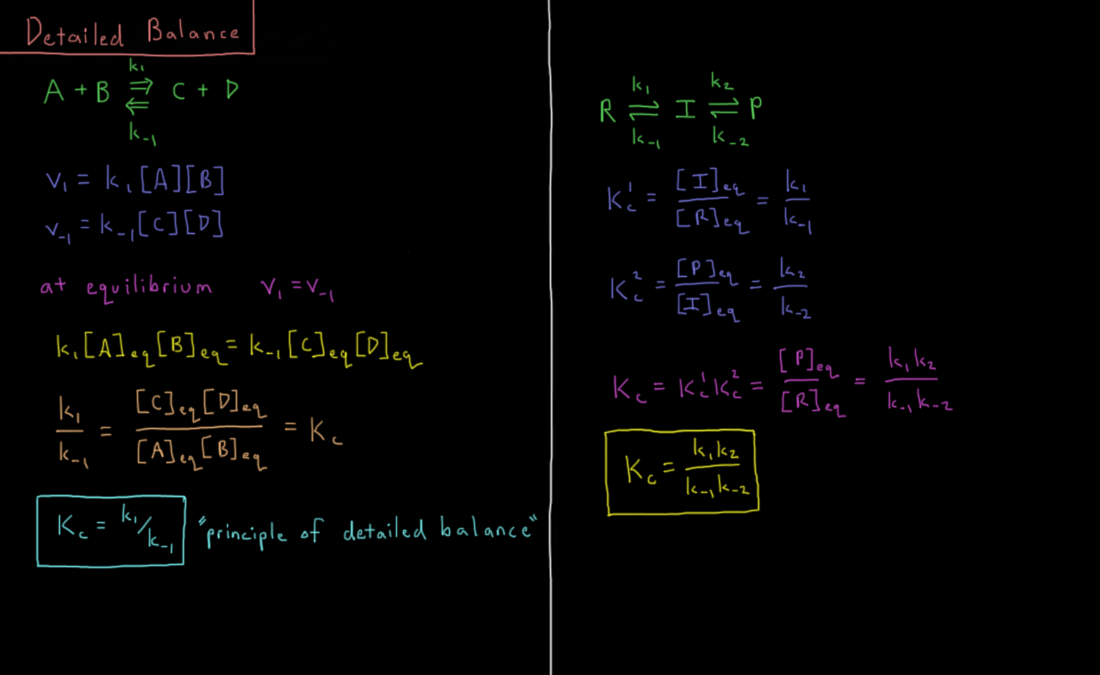 Detailed Balance
A + B ⇌ C + D
k₁
k₋₁
v₁ = k₁[A][B]
v₋₁ = k₋₁[C][D]
at equilibrium v₁ = v₋₁
k₁[A]eq[B]eq = k₋₁[C]eq[D]eq
k₁/k₋₁ = [C]eq[D]eq/[A]eq[B]eq = Kc
Kc = k₁/k₋₁ "principle of detailed balance"
k₁ k₂
R ⇌ I ⇌ P
k₋₁ k₋₂
Kc¹ = [I]eq/[R]eq = k₁/k₋₁
Kc² = [P]eq/[I]eq = k₂/k₋₂
Kc = Kc¹Kc² = [P]eq/[R]eq = k₁k₂/k₋₁k₋₂
Kc = k₁k₂/k₋₁k₋₂